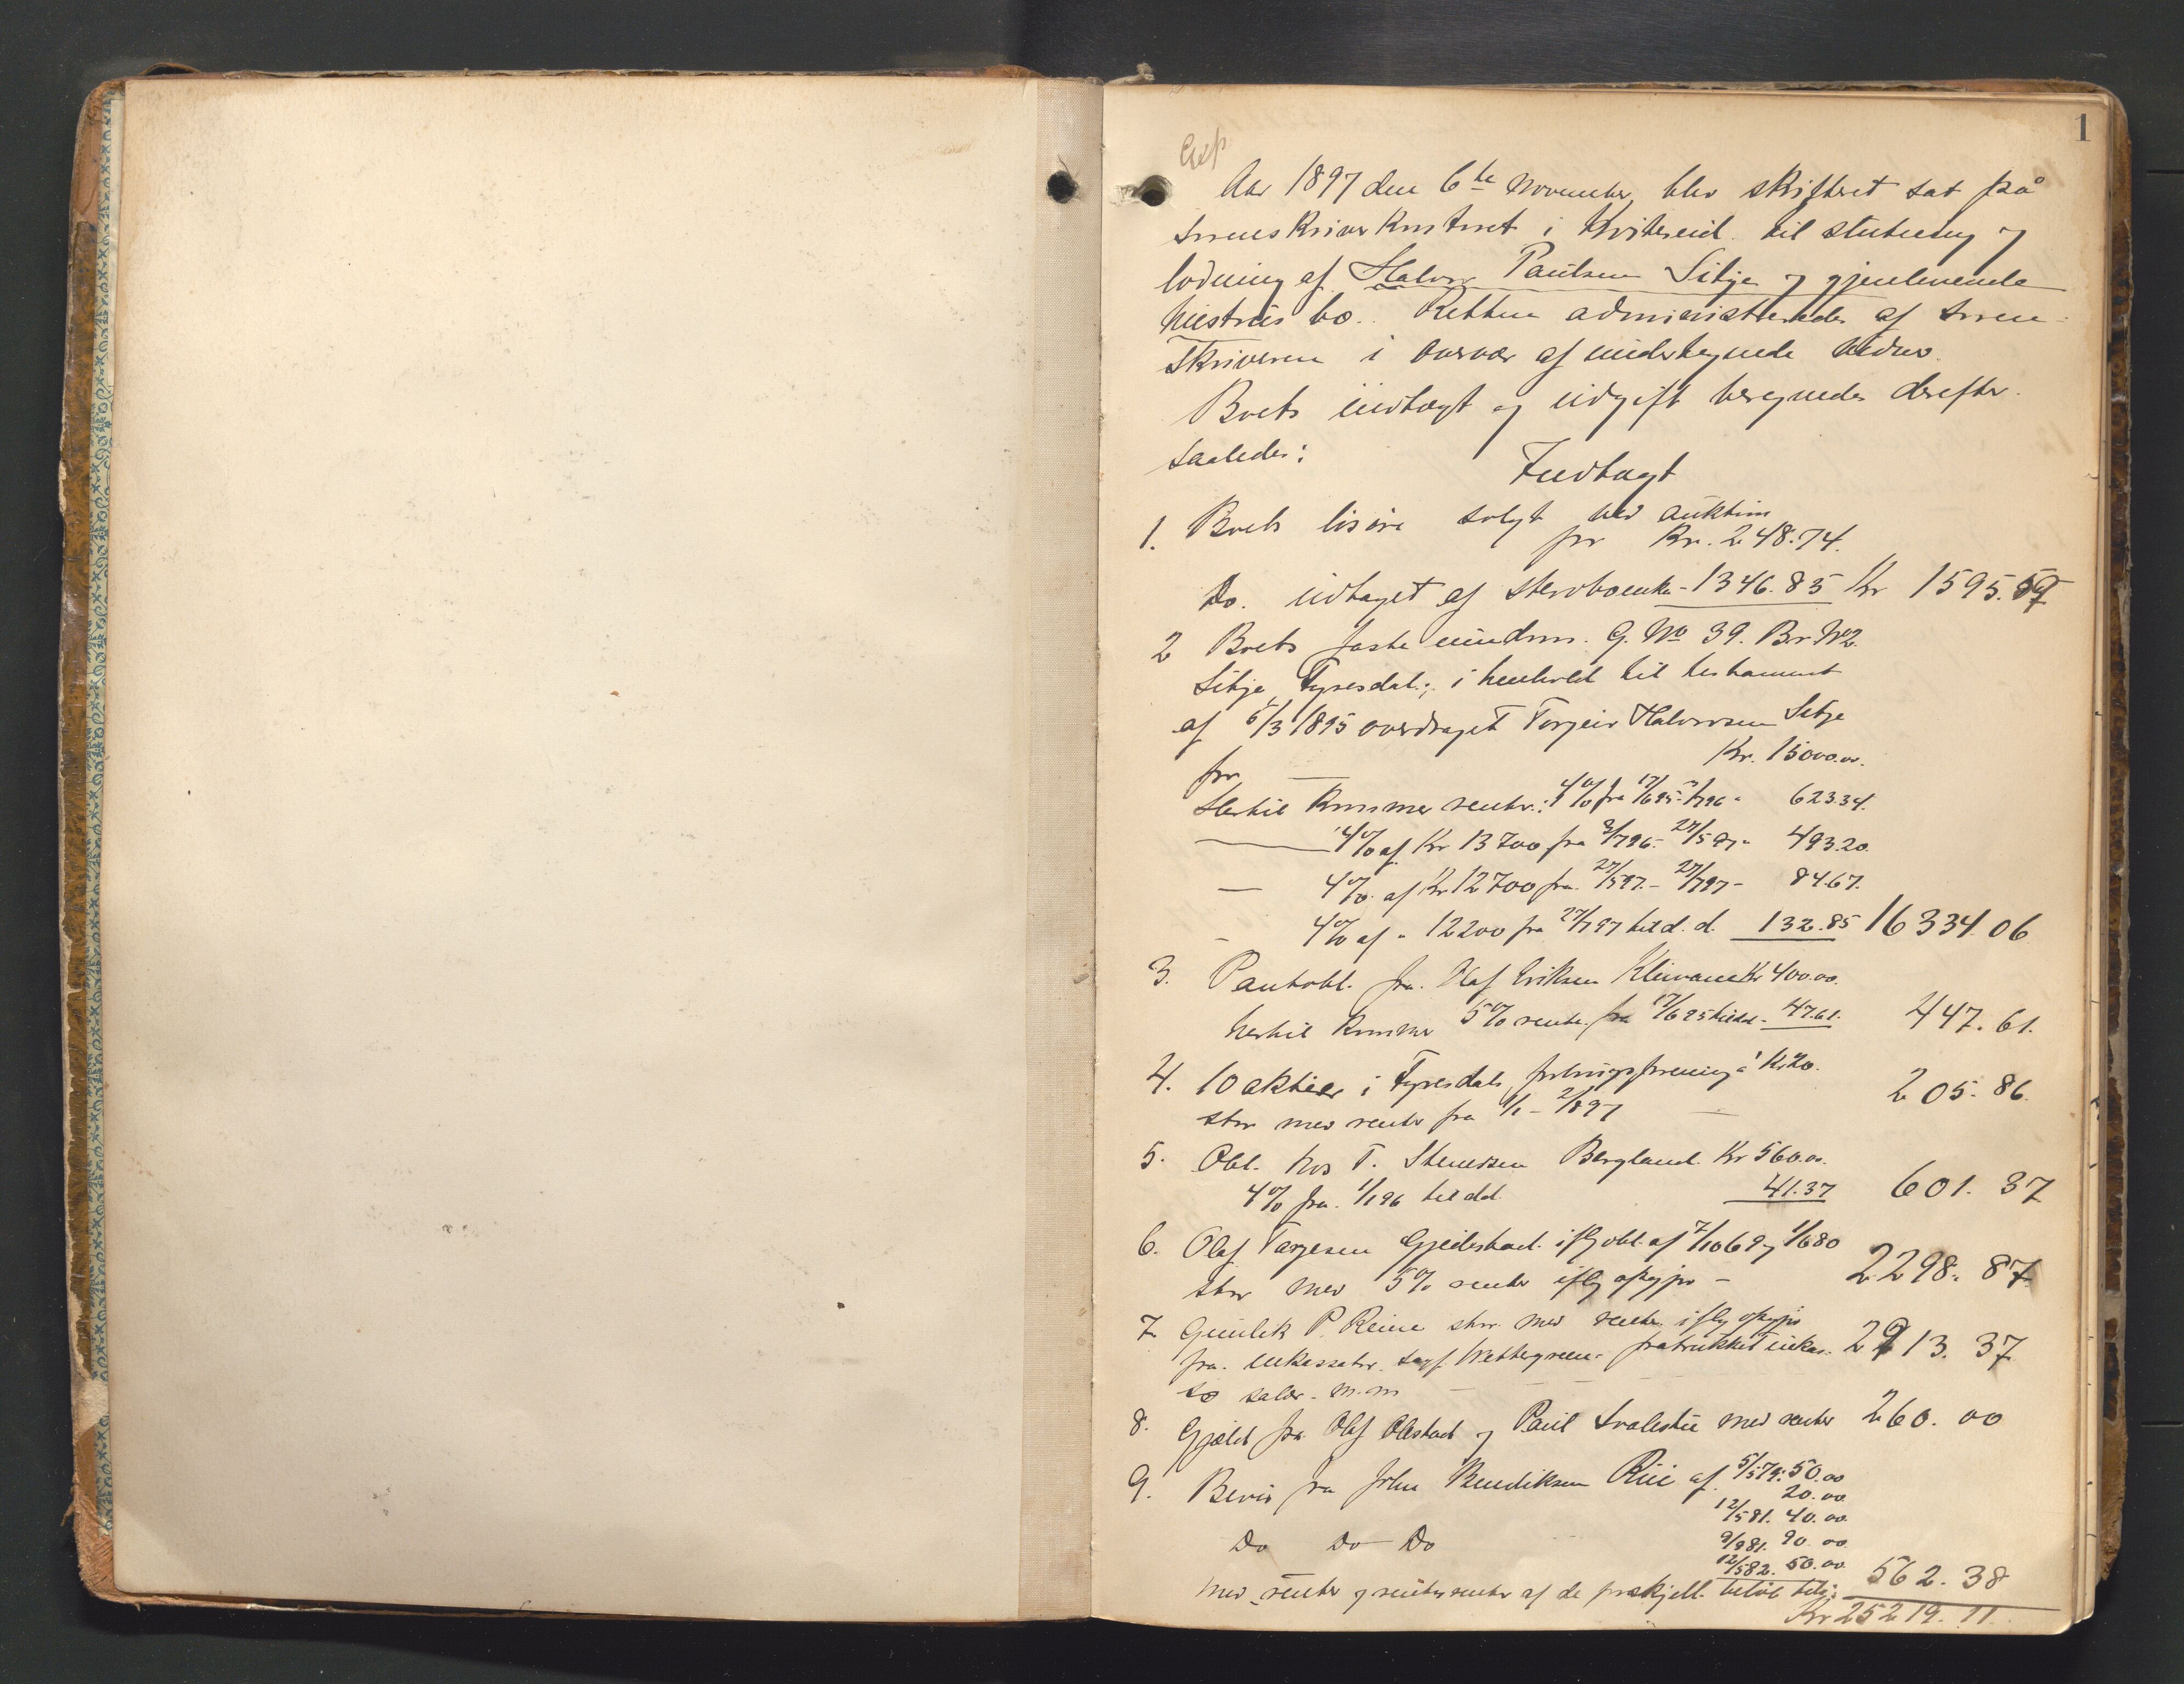 1
Exp
Aar 1897 den 6te November blev skifteret sat på
Sorenskriverkontoret i Hviteseid til slutning og
lodning af Halvor Paulsen Sitje og gjenlevende
hustrus bo. Retten administreredes af Soren-
skriveren i overvær af undertegnede vidner.
Boets indtægt og udgift beregnedes derefter
saaledes:
Indtægt
1. Boets løsøre solgt ved auktion
for Kr. 248.74.
Do. udtaget af sterboenke - 1346.85 Kr 1595.59
2 Boets faste eiendom. G. No 39. Br. No 2.
Sitje, Tyresdal; i henhold til testament
af 5/3 1895 overdraget Torgeir Halvorsen Sitje
for — Kr. 15000.00.
Hertil kommer renter: 4% fra 17/6 95 - 3/7 96 - 623.34.
— 4% af Kr 13700 fra 3/7 96 - 27/5 97 - 493.20.
— 4% af Kr 12700 fra 27/5 97 - 27/7 97 - 84.67.
- 4% af " 12200 fra 27/7 97 til d. d. 132.85 16334.06
3. Pantobl. fra Olaf Eriksen Kleivane Kr 400.00.
hertil kommer 5% rente fra 17/6 95 til dd. - 47.61. 447.61.
4. 10 aktier i Tyresdals forbrugsforening á Kr 20.
stor med renter fra 1/1 - 2/8 97 — 205.86.
5. Obl. hos T. Stenersen Bergland Kr 560.00.
4% fra 1/1 96 til dd. 41.37 601.37
6. Olaf Targesen Gjeilestad iflg obl. af 7/10 69 og 1/6 80
stor med 5% renter iflg opgjør - 2298.87.
7. Gunlik P. Reine stor med renter iflg opgjør
fra inkassator sagf. Wettergreen fratrukket inkas- 2913.37
so salær m. m — —
8. Gjæld fra Olaf Olstad og Paul Svalestu med renter 260.00
9. Bevis fra John Bendiksen Rui af 5/5 79: 50.00
20.00
12/5 81. 40.00
Do Do Do 9/9 81. 90.00
12/5 82. 50.00
med renter og rentersrenter af de forskjell. beløb tils: 562.38
Kr 25219.11.